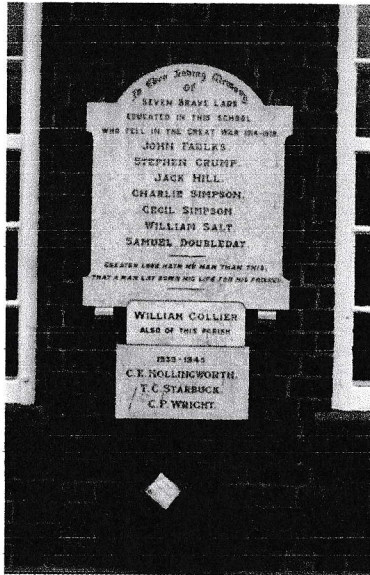 In Ever Loving Memory
OF
SEVEN BRAVE LADS
EDUCATED IN THIS SCHOOL
WHO FELL IN THE GREAT WAR 1914-1918.
JOHN FAULKS.
STEPHEN CRUMP.
JACK HILL.
CHARLIE SIMPSON.
CECIL SIMPSON
WILLIAM SALT
SAMUEL DOUBLEDAY
GREATER LOVE HATH NO MAN THAN THIS,
THAT A MAN LAY DOWN HIS LIFE FOR HIS FRIENDS.
WILLIAM COLLIER
ALSO OF THIS PARISH
1939-1945
C.E. HOLLINGWORTH.
T.C. STARBUCK.
C.P. WRIGHT